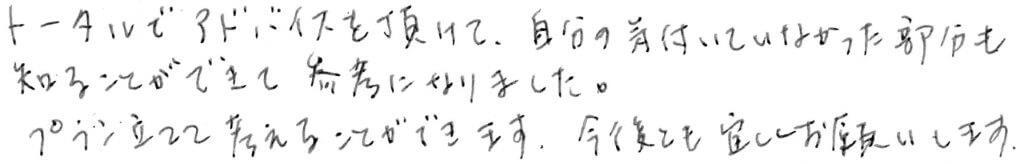 トータルでアドバイスを頂けて、自分の気付いていなかった部分も
知ることができて参考になりました。
プラン立てて考えることができます。今後とも宜しくお願いします。